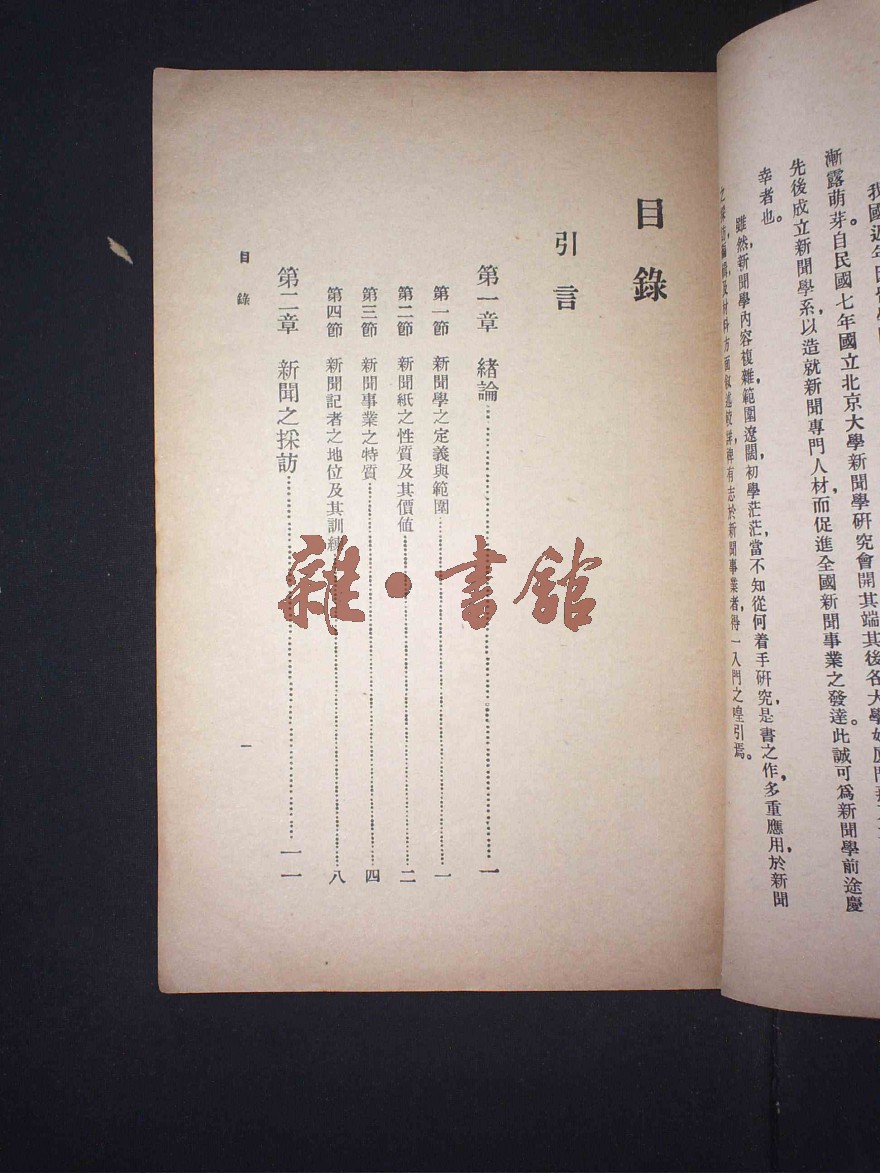 漸露萌芽。自民國七年國立北京大學新聞學研究會開其端其後各大學
先後成立新聞學系，以造就新聞專門人材，而促進全國新聞事業之發達。此誠可爲新聞學前途慶
幸者也。
雖然，新聞學內容複雜，範圍遼闊，初學茫茫，當不知從何着手研究，是書之作，多重應用，於新聞
方面叙述較詳，俾有志於新聞事業者，得一入門之引焉。
目錄
引言
第一章 緒論 一
第一節 新聞學之定義與範圍 一
第二節 新聞紙之性質及其價値 二
第三節 新聞事業之特質 四
第四節 新聞記者之地位及其訓練 八
第二章 新聞之採訪 一一
目錄
一
雜·書館